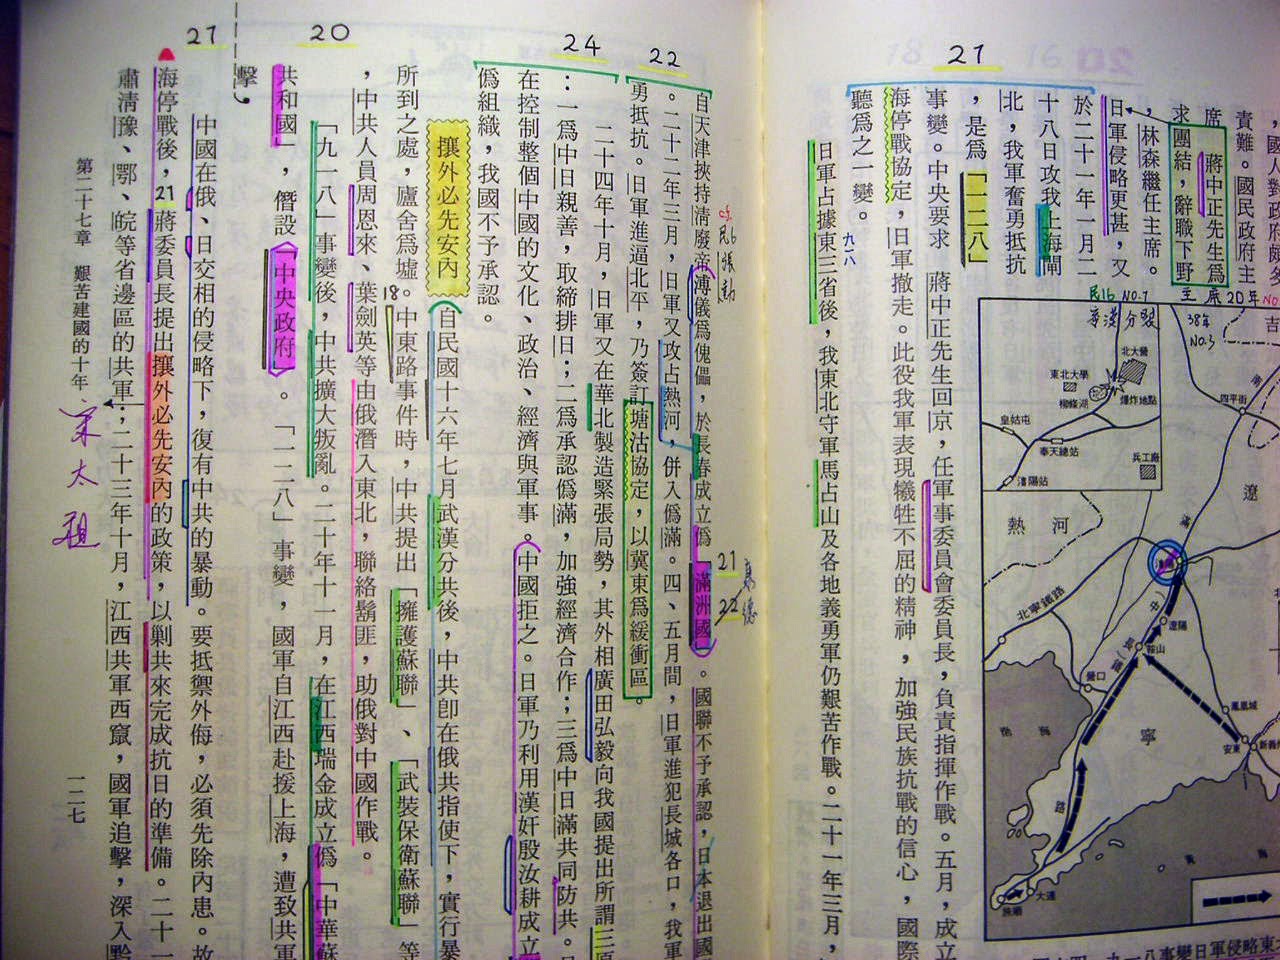 21
，國人
責難。國民政府主
席　蔣中正先生爲
求團結，辭職下野
，林森繼任主席。
日軍侵略更甚，又
於二十一年一月二
十八日攻我上海閘
北，我軍奮勇抵抗
，是爲「一二八」
事變。中央要求　蔣中正先生回京，任軍事委員會委員長，負責指揮作戰。五月，成立
海停戰協定，日軍撤走。此役我軍表現犧牲不屈的精神，加強民族抗戰的信心，國際
聽爲之一變。
九一八
日軍占據東三省後，我東北守軍馬占山及各地義勇軍仍艱苦作戰。二十一年三月，
主席20年
民16 NO.1
38年
NO.3
分裂
吉
北大營
東北大學
柳條湖
爆炸地點
皇姑屯
奉天總站
瀋陽站
兵工廠
四平街
遼
熱河
北寧鐵路
遼陽
鞍山
營口
鳳凰城
安東
寧
路
大連
旅順
渤海
黃海
東略侵軍日變事八一九
22
24
20
21
自天津挾持清廢帝溥儀爲傀儡，於長春成立僞「滿洲國」。國聯不予承認，日本退出國
。二十二年三月，日軍又攻占熱河，併入僞滿。四、五月間，日軍進犯長城各口，我軍
勇抵抗。日軍進逼北平，乃簽訂塘沽協定，以冀東爲緩衝區。
二十四年十月，日軍又在華北製造緊張局勢，其外相廣田弘毅向我國提出所謂三原
：一爲中日親善，取締排日；二爲承認僞滿，加強經濟合作；三爲中日滿共同防共。
在控制整個中國的文化、政治、經濟與軍事。中國拒之。日軍乃利用漢奸殷汝耕成立
僞組織，我國不予承認。
攘外必先安內
自民國十六年七月武漢分共後，中共卽在俄共指使下，實行暴
所到之處，廬舍爲墟。中東路事件時，中共提出「擁護蘇聯」、「武裝保衛蘇聯」等
，中共人員周恩來、葉劍英等由俄潛入東北，聯絡鬍匪，助俄對中國作戰。
18
「九一八」事變後，中共擴大叛亂。二十年十一月，在江西瑞金成立僞「中華蘇
共和國」，僭設「中央政府」。「一二八」事變，國軍自江西赴援上海，遭致共軍
擊。
中國在俄、日交相的侵略下，復有中共的暴動。要抵禦外侮，必須先除內患。故
海停戰後，蔣委員長提出攘外必先安內的政策，以剿共來完成抗日的準備。二十一
21
肅清豫、鄂、皖等省邊區的共軍；二十三年十月，江西共軍西竄，國軍追擊，深入黔
21
22
民16
宋太祖
第二十七章　艱苦建國的十年
一二七